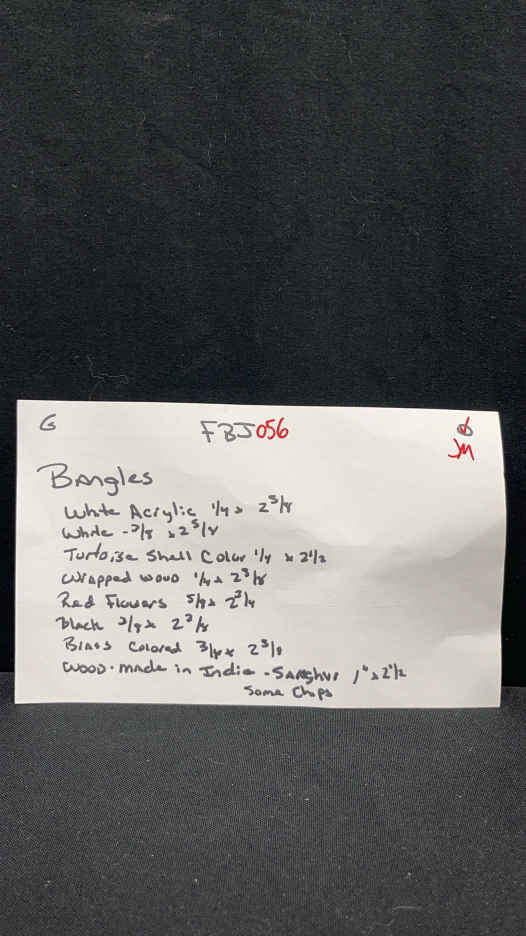 G FBJ056
JM
Bangles
White Acrylic 1/4 x 2 5/8
White - 3/8 x 2 5/8
Turtoise Shell Color 1/4 x 2 1/2
Wrapped wood 1/4 x 2 5/8
Red Flowers 5/8 x 2 3/4
Black 3/8 x 2
Brass Colored 3/4 x 2 3/8
Wood. made in India - 1" x 2 1/2
Some Chips